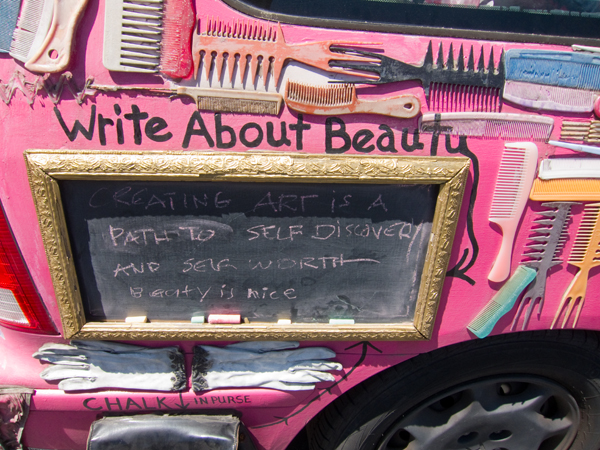 Write About Beauty
CREATING ART IS A
PATH TO SELF DISCOVERY
AND SELF WORTH
BEAUTY IS NICE
CHALK IN PURSE